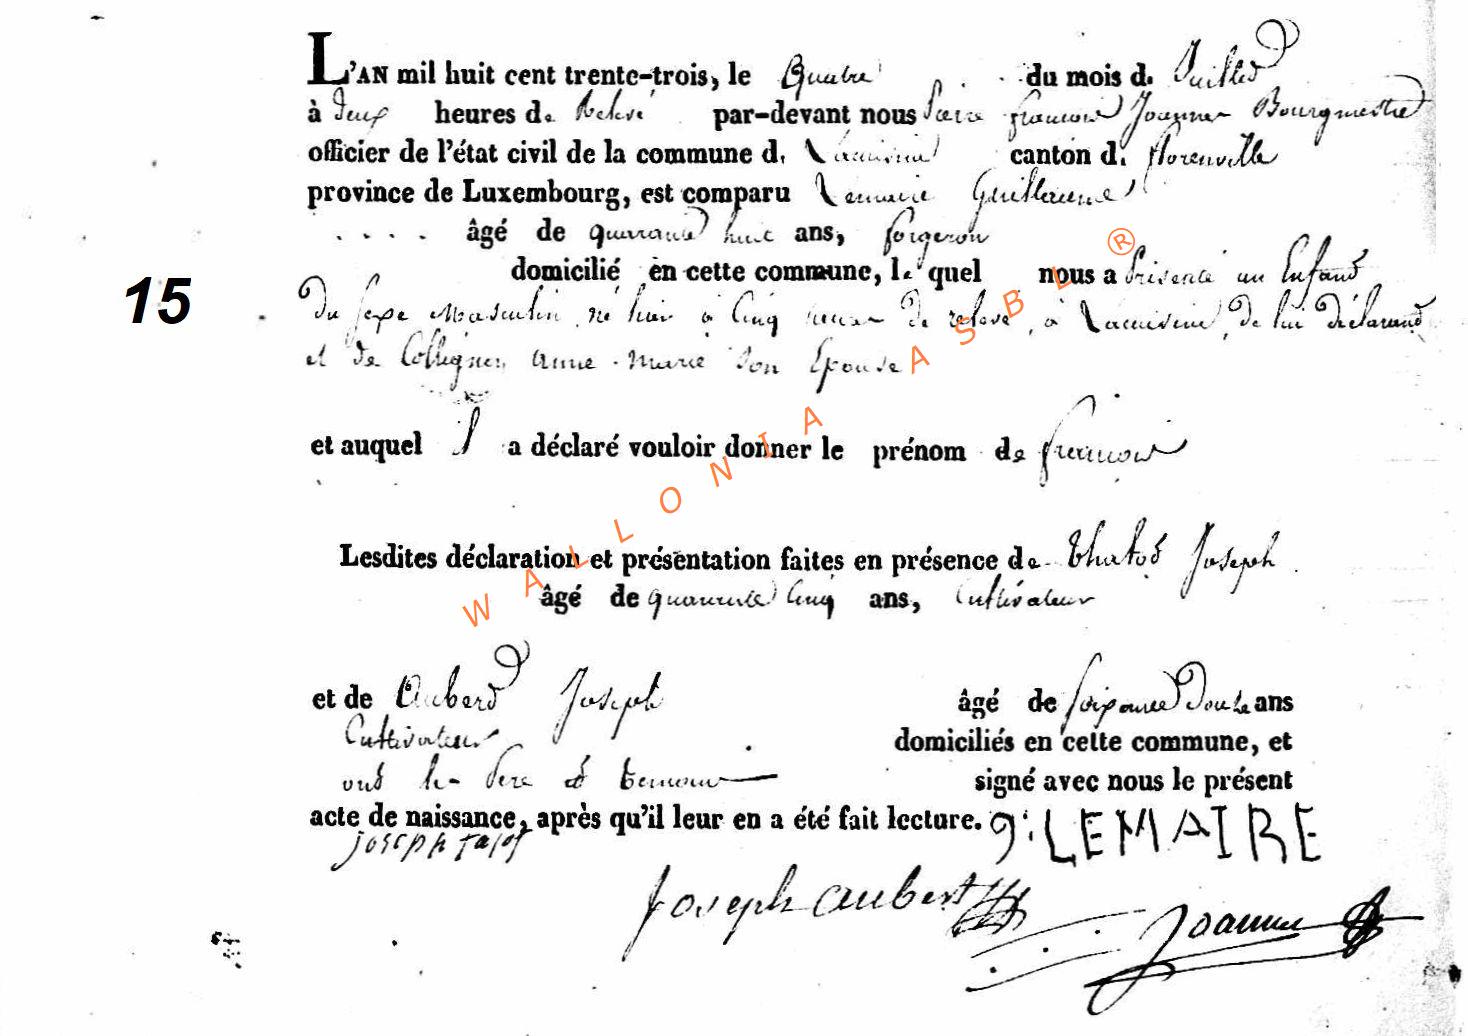 L'AN mil huit cent trente-trois, le Quatre du mois d. Juillet
à deux heures de Relevé par-devant nous Pierre françois Joannes Bourgmestre
officier de l'état civil de la commune d. Lacuisine canton d. florenville
province de Luxembourg, est comparu Lemaire Guillaume
.... âgé de quarante huit ans, forgeron
domicilié en cette commune, le quel nous a Présenté un Enfant
15
Du Sexe Masculin, né hier à Cinq heures de relevé, à Lacuisine, de lui déclarant
et de Collignon anne-marie son Epouse
et auquel il a déclaré vouloir donner le prénom de françois
Lesdites déclaration et présentation faites en présence de Thatot Joseph
âgé de quarante Cinq ans, Cultivateur
et de Aubert Joseph âgé de soixante Douze ans
Cultivateur domiciliés en cette commune, et
ont le Père et temoins signé avec nous le présent
acte de naissance, après qu'il leur en a été fait lecture. g: LEMAIRE
joseph tatot
joseph aubert
Joannes
WALLONIA ASBL ®